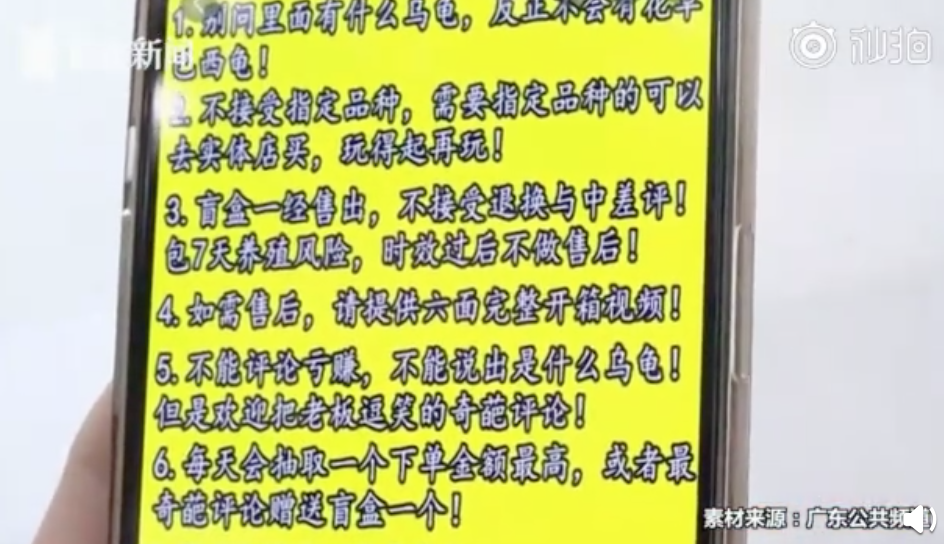 秒拍
新闻
1.别问里面有什么乌龟，反正不会有花草
巴西龟！
2.不接受指定品种，需要指定品种的可以
去实体店买，玩得起再玩！
3.盲盒一经售出，不接受退换与中差评！
包7天养殖风险，时效过后不做售后！
4.如需售后，请提供六面完整开箱视频！
5.不能评论亏赚，不能说出是什么乌龟！
但是欢迎把老板逗笑的奇葩评论！
6.每天会抽取一个下单金额最高，或者最
奇葩评论赠送盲盒一个！
素材来源：广东公共频道